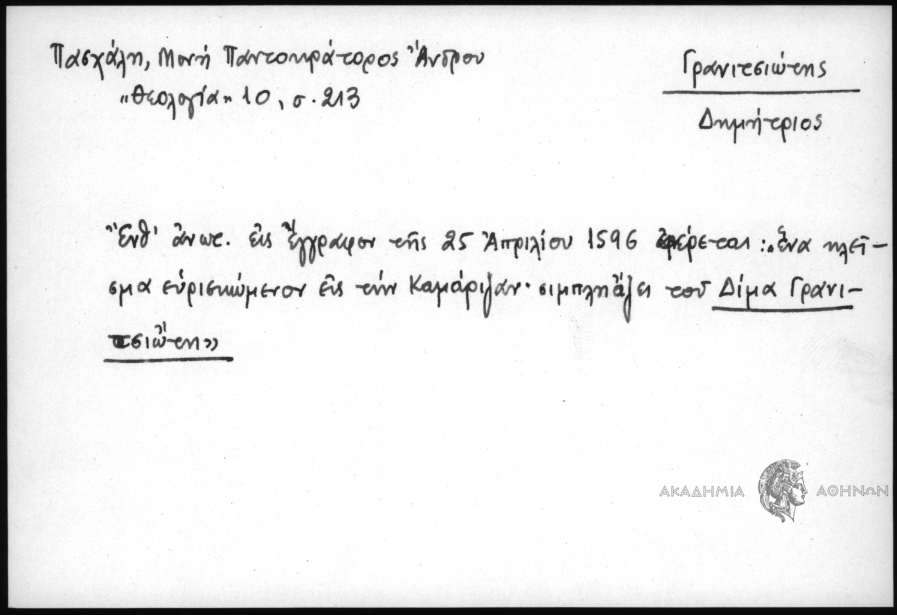 Πασχάλη, Μονή Παντοκράτορος Ἄνδρου
«Θεολογία» 10, σ. 213
Γρανιτσιώτης
Δημήτριος
Ἔνθ' ἀνωτ. εἰς ἔγγραφον τῆς 25 Ἀπριλίου 1596 φέρεται: «ἕνα κλεῖ-
σμα εὑρισκώμενον εἰς τὴν Καμάριζαν· σιμπληάζει τοῦ Δίμα Γρανι-
τσιώτη»
ΑΚΑΔΗΜΙΑ ΑΘΗΝΩΝ